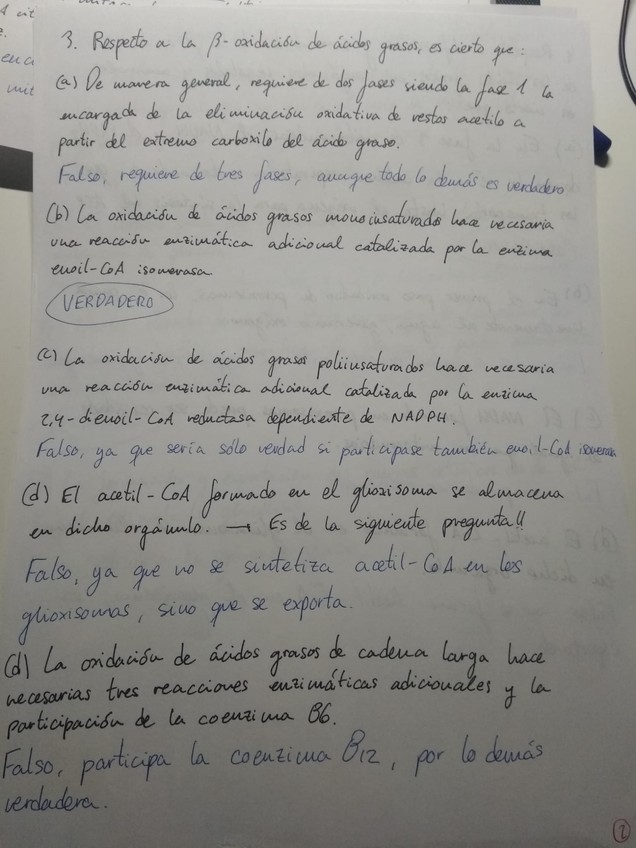 3. Respecto a la β-oxidación de ácidos grasos, es cierto que:
(a) De manera general, requiere de dos fases siendo la fase 1 la
encargada de la eliminación oxidativa de restos acetilo a
partir del extremo carboxilo del ácido graso.
Falso, requiere de tres fases, aunque todo lo demás es verdadero
(b) La oxidación de ácidos grasos monoinsaturados hace necesaria
una reacción enzimática adicional catalizada por la enzima
enoil-CoA isomerasa
VERDADERO
(c) La oxidación de ácidos grasos poliinsaturados hace necesaria
una reacción enzimática adicional catalizada por la enzima
2,4-dienoil-CoA reductasa dependiente de NADPH.
Falso, ya que sería sólo verdad si participase también enoil-CoA isomerasa
(d) El acetil-CoA formado en el glioxisoma se almacena
en dicho orgánulo. → Es de la siguiente pregunta!!
Falso, ya que no se sintetiza acetil-CoA en los
glioxisomas, sino que se exporta.
(d) La oxidación de ácidos grasos de cadena larga hace
necesarias tres reacciones enzimáticas adicionales y la
participación de la coenzima B6.
Falso, participa la coenzima B12, por lo demás
verdadera.